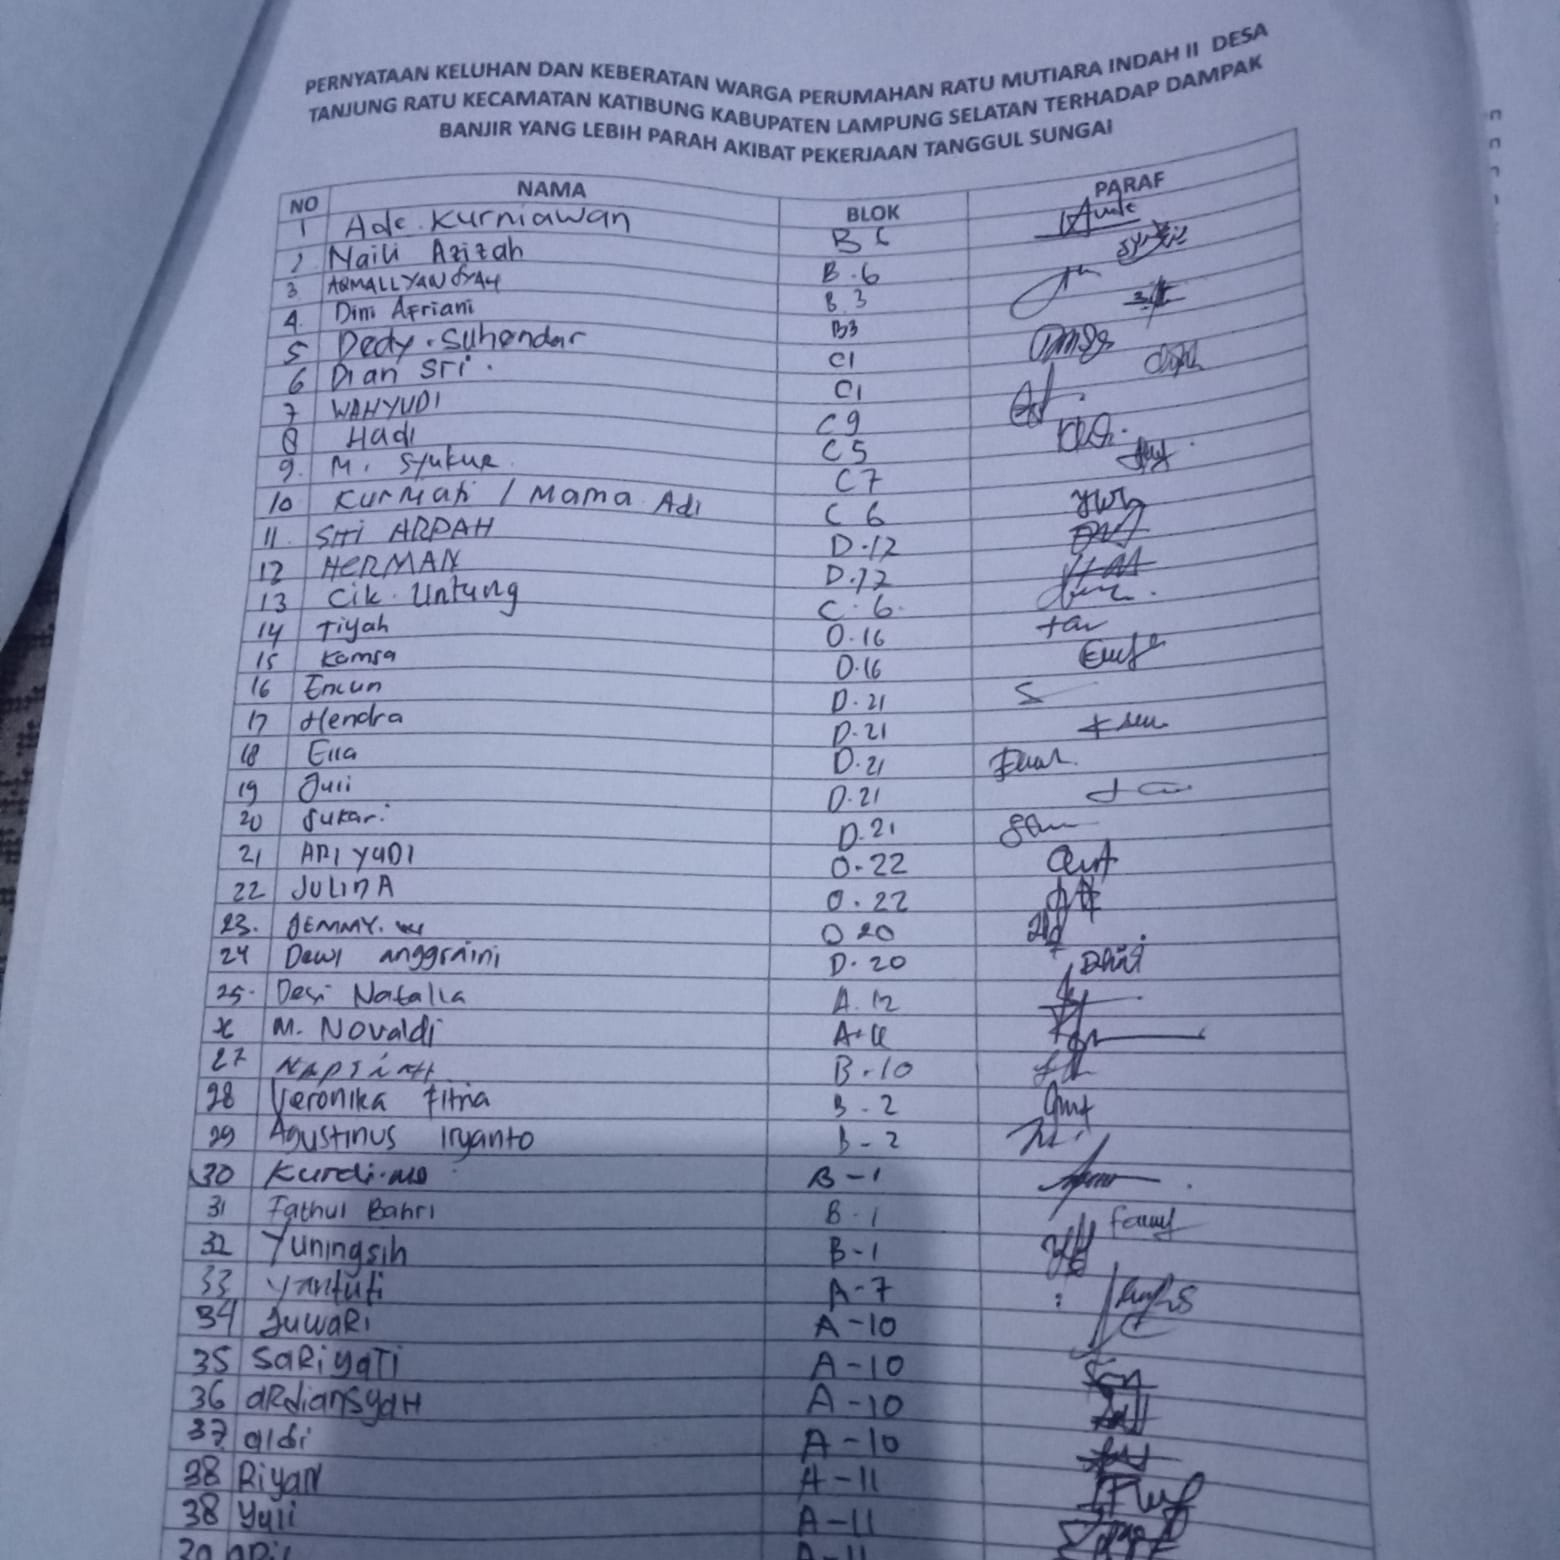 PERNYATAAN KELUHAN DAN KEBERATAN WARGA PERUMAHAN RATU MUTIARA INDAH II DESA
TANJUNG RATU KECAMATAN KATIBUNG KABUPATEN LAMPUNG SELATAN TERHADAP DAMPAK
BANJIR YANG LEBIH PARAH AKIBAT PEKERJAAN TANGGUL SUNGAI
NO NAMA BLOK PARAF
1 Ade Kurniawan B
2 Naili Azizah B.6
3 B.3
4. Dini Afriani B3
5 Dedy. Suhendar C1
6 Dian Sri. C1
7 WAHYUDI C9
8 Hadi C5
9. M. Syukur C7
10 Kurmati / Mama Adi C6
11. SITI ARPAH D.12
12 HERMAN D.12
13 Cik. Untung C.6.
14 Tiyah D.16
15 Komsa D.16
16 Encun D.21
17 Hendra D.21
18 Ella D.21
19 Juli D.21
20 Sukari D.21
21 ARI YUDI D.22
22 JULINA D.22
23. JEMMY. D 20
24 Dewi anggraini D.20
25. Desi Natalia A.12
M. Novaldi A.11
27 NAPSIAH B.10
28 Veronika Fitria B-2
29 Agustinus Iryanto B-2
30 B-1
31 Fathul Bahri B-1
32 Yuningsih B-1
33 Yantuti A-7
34 JUWARI A-10
35 SARiyATi A-10
36 ARdiansyaH A-10
37 aldi A-10
38 Riyan A-11
38 Yuli A-11
A-11